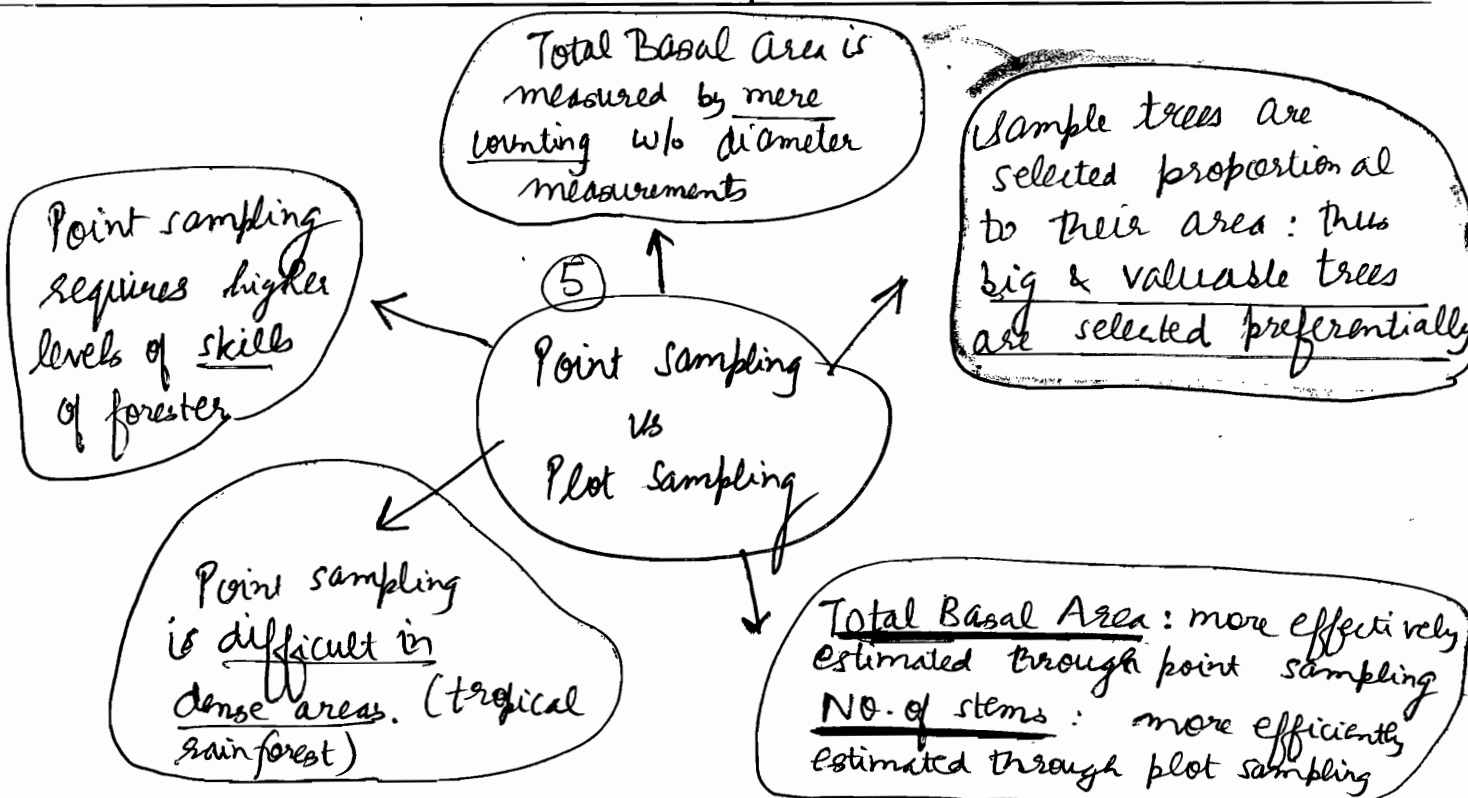 Total Basal Area is
measured by mere
counting w/o diameter
measurements
sample trees are
selected proportional
to their area : thus
big & valuable trees
are selected preferentially
Point sampling
requires higher
levels of skills
of forester
5
Point Sampling
Vs
Plot Sampling
Point sampling
is difficult in
dense areas. (tropical
rainforest)
Total Basal Area : more effectively
estimated through point sampling
No. of stems : more efficiently
estimated through plot sampling